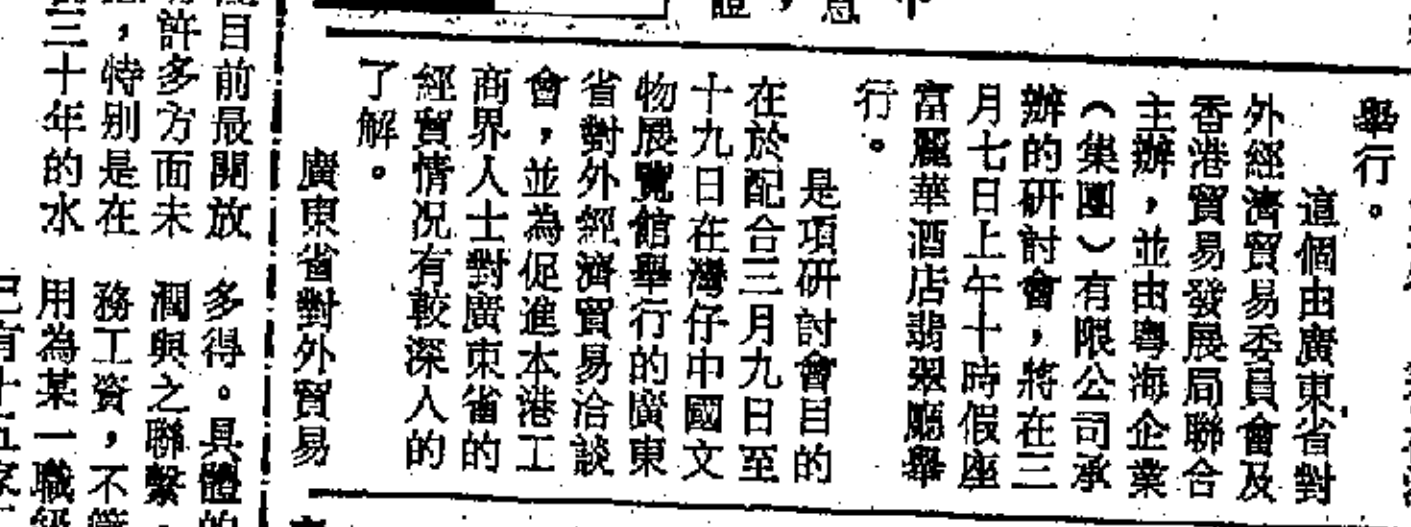 舉行。
這個由廣東省對
外經濟貿易委員會及
香港貿易發展局聯合
主辦，並由粵海企業
（集團）有限公司承
辦的研討會，將在三
月七日上午十時假座
富麗華酒店翡翠廳舉
行。
是項研討會目的
在於配合三月九日至
十九日在灣仔中國文
物展覽館舉行的廣東
省對外經濟貿易洽談
會，並為促進本港工
商界人士對廣東省的
經貿情況有較深入的
了解。
廣東省對外貿易
目前最開放
許多方面未
，特別是在
三十年的水
多得。具體的
潤與之聯繫，
務工資，不管
用為某一職級
已有十五家